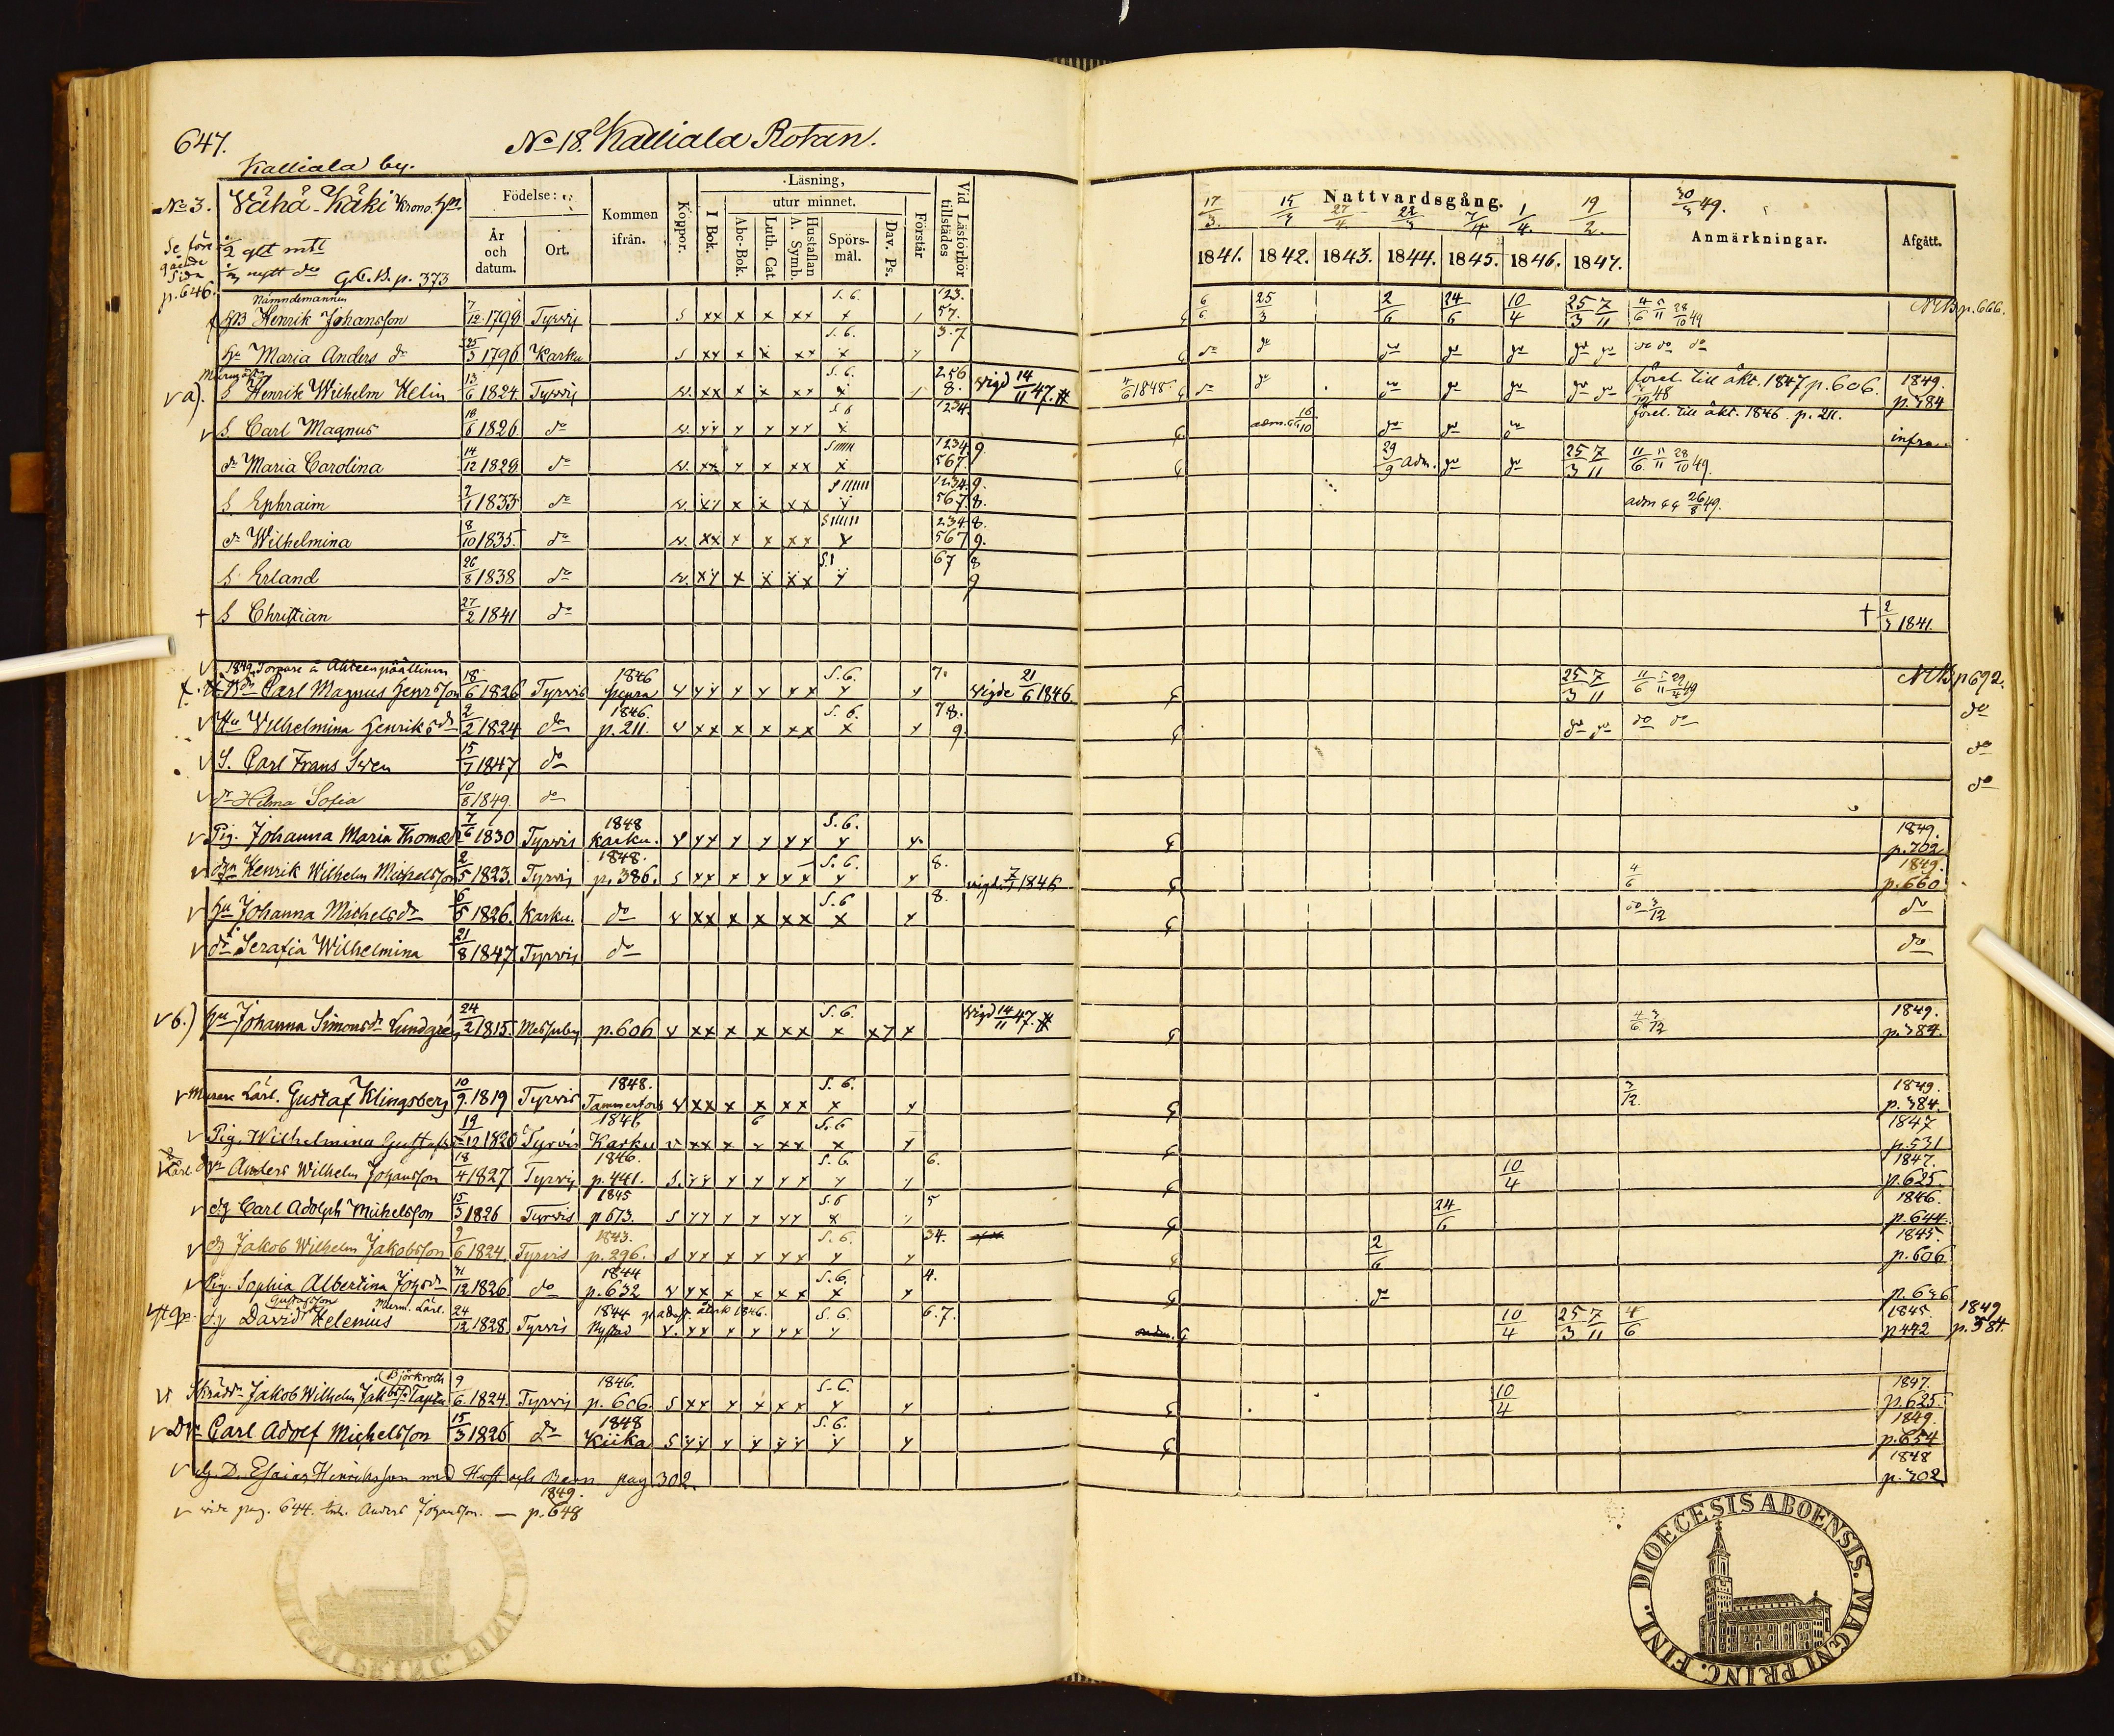 647.
No 18. Kalliala Rotan.
Kalliala by.
No 3. Vähä-Käki Krono
Se före gående Sida p. 646.
1/2 glt mtl
nytt do G.C.B. p. 373
Födelse: År och datum. Ort. Kommen ifrån. Koppor. Läsning, I Bok. utur minnet. Abc-Bok. Luth. Cat. A. Symb. Hustaflan Spörsmål. Dav. Ps. Förstår Vid Läsförhör tillstädes
Nattvardsgång. Anmärkningar. Afgått.
17/3. 15/3 27/4 22/3 7/4 1/4. 19/2. 30/3 49.
1841. 1842. 1843. 1844. 1845. 1846. 1847.
Nämndemannen
Henrik Johansson 7/12 1798 Tyrvis s xx x x xx S. 6. x 123. 57. 6/6 25/3 2/6 24/6 10/4 25/3 7/11 4/6 5/11 28/10 49 NCB p. 666.
Hu Maria Anders dr 25/3 1796 Karku s xx x x xx S. 6. x 3.7 do do do do do do do do do do
a). S Henrik Wilhelm Helin 13/6 1824 Tyrvis v. xx x x xx S. 6. x 256 8. Vigd 14/11 47. # 4/6 1848 do do do do do do do förel. till äkt. 1847 p. 606. 1849. p. 384
S. Carl Magnus 18/6 1826 do v. xx x x xx S 6 x 1234. adm. 16/10 do do do förel. till äkt. 1846. p. 211. infra
dr Maria Carolina 14/12 1829 do v. xx x x xx x 1234 567. 9 29/9 adm. do do 25/3 7/11 11/6 5/11 28/10 49.
S Ephraim 7/1 1833 do v. xx x x xx x 1234. 567. 9. 8. adm 26/8 49.
dr Wilhelmina 8/10 1835 do v. xx x x xx x 234 567 8. 9.
S. Erland 26/8 1838 do v. xx x x xx S.1 67 8 9
† S Christian 27/2 1841 do † 2/3 1841.
1849 Torpare å Ahteenpäällinen
Carl Magnus Henrsson 18/6 1826 Tyrvis 1846 v xx x x xx S. 6. x x 7. Vigde 21/6 1846. 25/3 7/11 11/6 5/11 29/4 49 NCB p 692.
Hu Wilhelmina Henriksdr 2/2 1824 do 1846. p. 211. v xx x x xx S. 6. x x 78. 9. do do do do do
S. Carl Frans Sven 15/7 1847 do do
dr Hilma Sofia 10/8 1849. do do
Pig. Johanna Maria Thomædr 7/6 1830 Tyrvis 1848 Karku. v xx x x xx S. 6. x x. 1849. p. 702
Henrik Wilhelm Michelsson 2/5 1823. Tyrvis 1848. p. 386. s xx x x xx S. 6. x x 8. vigd 1846 4/6 1849. p. 660
Hu Johanna Michelsdr 6/5 1826. Karku. do v xx x x xx S. 6 x x 8. do 3/12 do
dr Serafia Wilhelmina 21/8 1847 Tyrvis do do
b.) Hu Johanna Simonsdr Lundgrén 24/2 1815. Messuby p. 606 v xx x x xx S. 6. x x 7 x Vigd 14/11 47. # 4/6 3/12 1849. p. 384.
Murare Lärl. Gustaf Klingsberg 10/9. 1819 Tyrvis 1848. Tammerfors v xx x x xx S. 6. x x 3/12. 1849. p. 384.
Pig. Wilhelmina Gustafs 19/12 1820 Tyrvis 1846 Karku v xx x x xx S. 6 x x 1847 p. 531
Anders Wilhelm Johansson 18/4 1827 Tyrvis 1846. p. 441. s. xx x x xx S. 6. x x 6. 10/4 1847. p. 625.
dg Carl Adolph Michelsson 15/3 1826 Tyrvis 1845 p 673. s xx x x xx S. 6 x 5 24/6 1846. p. 644.
dg Jakob Wilhelm Jakobsson 9/6 1824. Tyrvis 1843. p. 296. s xx x x xx S. 6. x x 34. 2/6 1845. p. 606
Pig. Sophia Albertina Johsdr 31/12 1826 do 1844 p. 632 v xx x x xx S. 6. x x 4. do p. 636
Gustafsson Murm. Lärl.
dg David Helenius 24/12 1828 Tyrvis 1844 återk 1846. v. xx x x xx S. 6. x 6.7. 10/4 25/3 7/11 4/6 1845 p 442 1849 p. 384.
Björkroth
Skrädd. Jakob Wilhelm 9/6. 1824. Tyrvis 1846. p. 606. s xx x x xx S. 6. x x 10/4 1847. p. 625.
Carl Adolf Michelsson 15/3 1826 do 1848 Kiika s xx x x xx S. 6. x x 1849. p. 654
Esaias Henriksson med Hust. och Barn pag. 302. 1848 p. 302
vide pag. 644. Anders Johansson. — 1849. p. 648
DIOECESIS ABOENSIS. MAGNI PRINC. FINL.